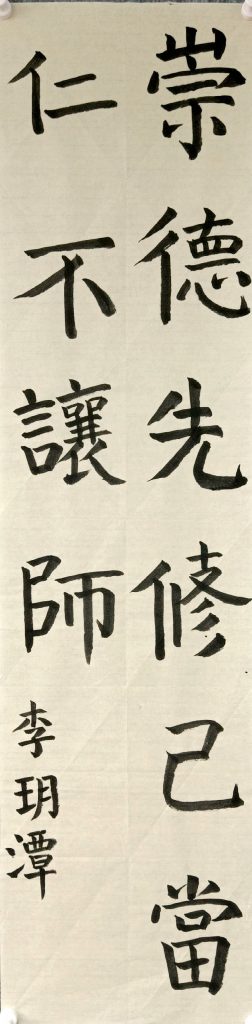 崇德先修己當
仁不讓師
李玥潭